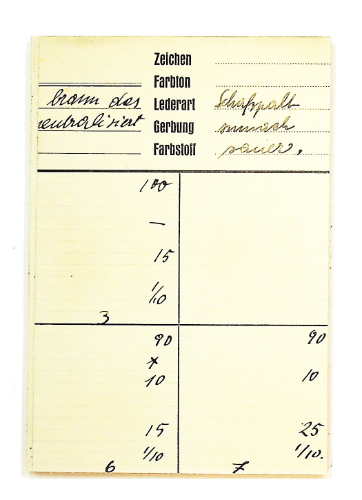 Zeichen
Farbton
braun das Lederart Schafspalt
neutralisiert Gerbung sumach
Farbstoff sauer.
100
—
15
1/10
3
90 90
x
10 10
15 25
1/10 1/10.
6 7